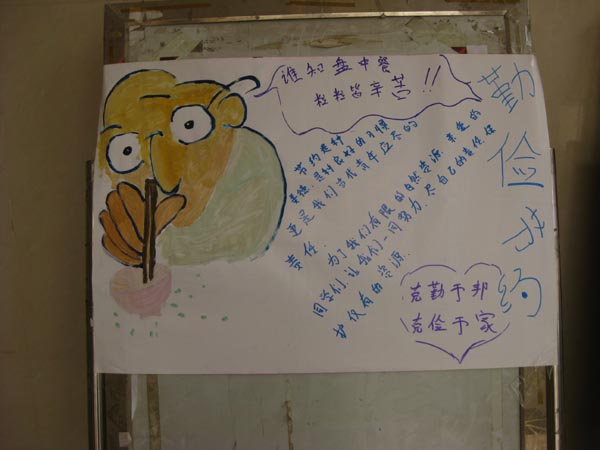 谁知盘中餐
粒粒皆辛苦!!
勤俭节约
节约是种
美德,是种良好的习惯
更是我们当代青年应尽的
责任.
为了我们有限的自然资源,亲爱的
同学们,让我们一同努力,尽自己的责任保
护仅有的资源.
克勤于邦
克俭于家